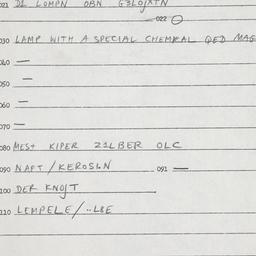 021 D1 LOMPN OBN G3LOJXTN
022 O
030 LAMP WITH A SPECIAL CHEMIKAL QED MAG
040 —
050 —
060 —
070 —
080 MES+ KIPER 21LBER OLC
090 NAFT / KEROSLN 091 —
100 DER KNOJT
110 LEMPELE / ..LBE